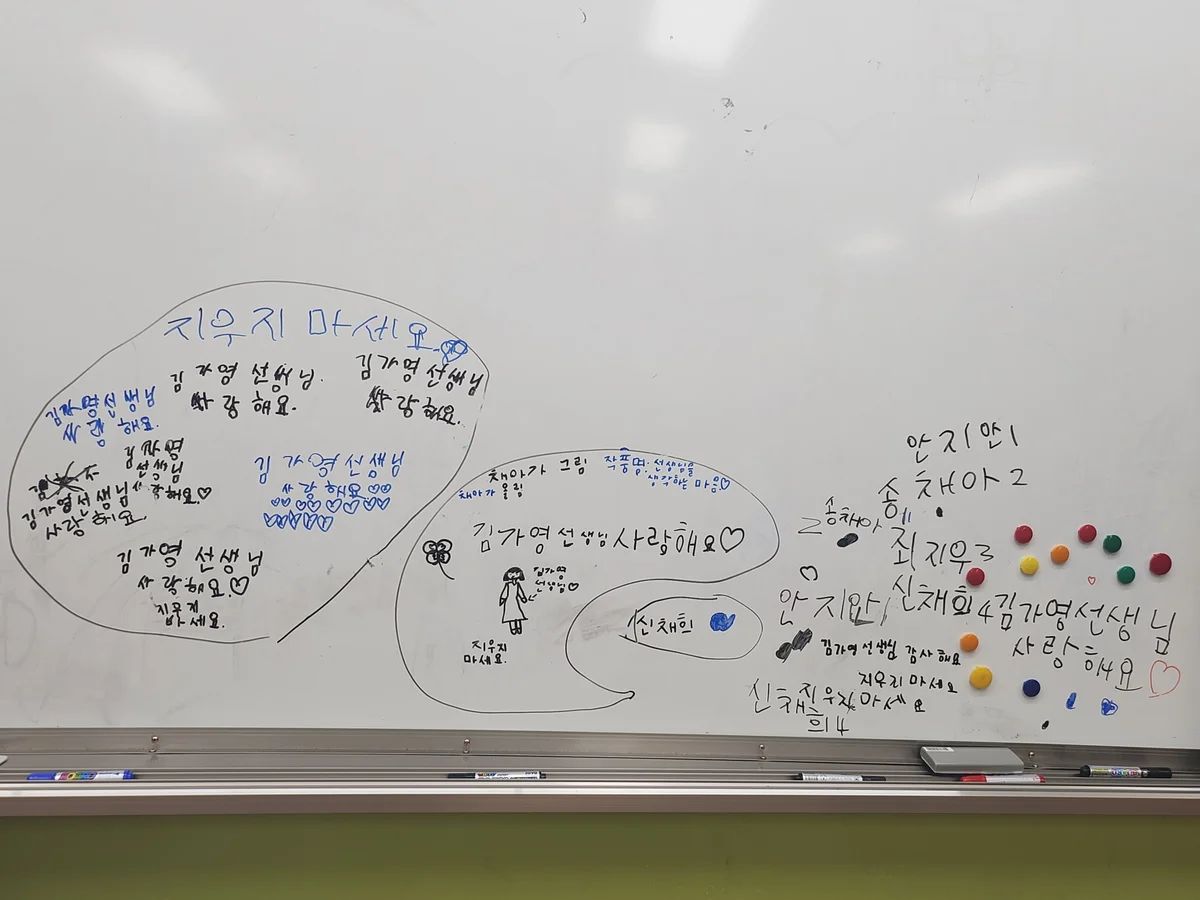 지우지 마세요.
김가영 선생님.
사랑해요.
김가영 선생님
사랑해요.
김가영선생님
사랑해요.
김가영
선생님
사랑해요.♡
김가영선생님
사랑해요.
김가영선생님
사랑해요♡♡
♡♡♡♡♡♡♡
♡♡♡♡♡
김가영 선생님
사랑해요.♡
지우지
마세요.
채아가 그림
채아가 올림
작품명. 선생님을
생각하는 마음♡
김가영선생님사랑해요♡
김가영
선생님♡
지우지
마세요.
신채희
안지안1
송채아2
송채아
2
최지우3
신채희4
안지안1
김가영선생님
사랑해요♡
김가영선생님 감사해요
지우지 마세요
지우지마세요
신채희4